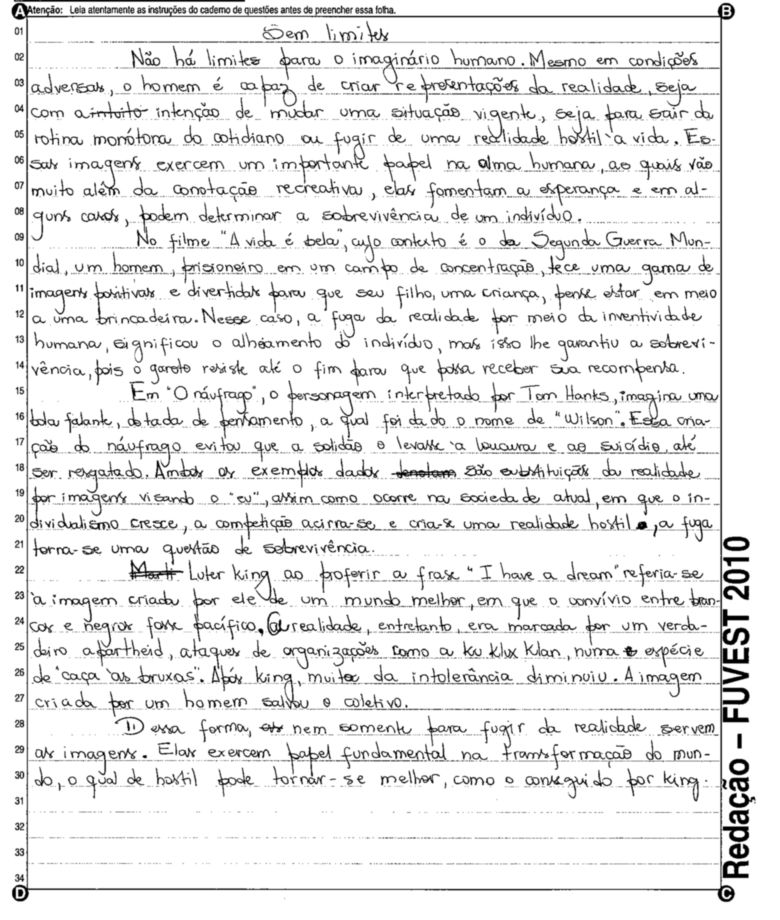 A Atenção: Leia atentamente as instruções do caderno de questões antes de preencher essa folha. B
01 Sem limites
02 Não há limites para o imaginário humano. Mesmo em condições
03 adversas, o homem é capaz de criar representações da realidade, seja
04 com a intuito intenção de mudar uma situação vigente, seja para sair da
05 rotina monótona do cotidiano ou fugir de uma realidade hostil à vida. Es-
06 sas imagens exercem um importante papel na alma humana, as quais vão
07 muito além da conotação recreativa, elas fomentam a esperança e em al-
08 guns casos, podem determinar a sobrevivência de um indivíduo.
09 No filme "A vida é bela", cujo contexto é o da Segunda Guerra Mun-
10 dial, um homem, prisioneiro em um campo de concentração, tece uma gama de
11 imagens positivas e divertidas para que seu filho, uma criança, pense estar em meio
12 a uma brincadeira. Nesse caso, a fuga da realidade por meio da inventividade
13 humana, significou o alheamento do indivíduo, mas isso lhe garantiu a sobrevi-
14 vência, pois o garoto resiste até o fim para que possa receber sua recompensa.
15 Em "O náufrago", o personagem interpretado por Tom Hanks, imagina uma
16 bola falante, dotada de pensamento, a qual foi dado o nome de "Wilson". Essa cria-
17 ção do náufrago evitou que a solidão o levasse à loucura e ao suicídio, até
18 ser resgatado. Ambos os exemplos dados denotam são substituições da realidade
19 por imagens visando o "eu", assim como ocorre na sociedade atual, em que o in-
20 dividualismo cresce, a competição acirra-se e cria-se uma realidade hostil, a fuga
21 torna-se uma questão de sobrevivência.
22 Marti Luter King ao proferir a frase "I have a dream" referia-se
23 à imagem criada por ele de um mundo melhor, em que o convívio entre bran-
24 cos e negros fosse pacífico. A realidade, entretanto, era marcada por um verda-
25 deiro apartheid, ataques de organizações como a Ku Klux Klan, numa espécie
26 de "caça às bruxas". Após King, muito da intolerância diminuiu. A imagem
27 criada por um homem salvou o coletivo.
28 Dessa forma, as nem somente para fugir da realidade servem
29 as imagens. Elas exercem papel fundamental na transformação do mun-
30 do, o qual de hostil pode tornar-se melhor, como o conseguido por King.
31
32
33
34
D C
Redação – FUVEST 2010